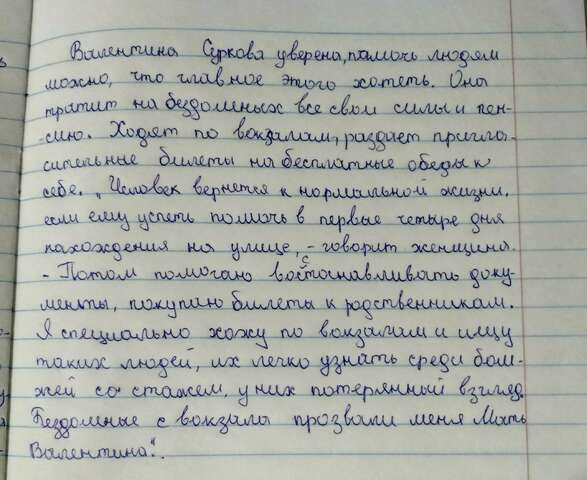 Валентина Суркова уверена, помочь людям
можно, что главное этого хотеть. Она
тратит на бездомных все свои силы и пен-
-сию. Ходят по вокзалам, раздает пригла-
сительные билеты на бесплатные обеды к
себе. „Человек вернется к нормальной жизни,
если ему успеть помочь в первые четыре дня
нахождения на улице, - говорит женщина.
- Потом помогаю восстанавливать доку-
менты, покупаю билеты к родственникам.
Я специально хожу по вокзалам и ищу
таких людей, их легко узнать среди бом-
жей со стажем, у них потерянный взгляд.
Бездомные с вокзала прозвали меня Мать
Валентина".